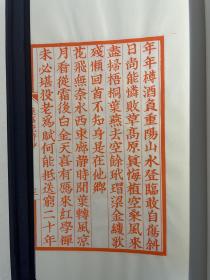 年年樽酒負重陽山水登臨敢自傷斜
日尚能憐敗草高原真悔植空桑風來
盡掃梧桐葉燕去空餘玳瑁梁金縷歌
殘懶回首不知身是在他鄉
花飛無奈水西東廊靜時聞葉轉風涼
月看從霜後白金天喜有雁來紅學禪
未必堪投老為賦何能抵送窮二十年